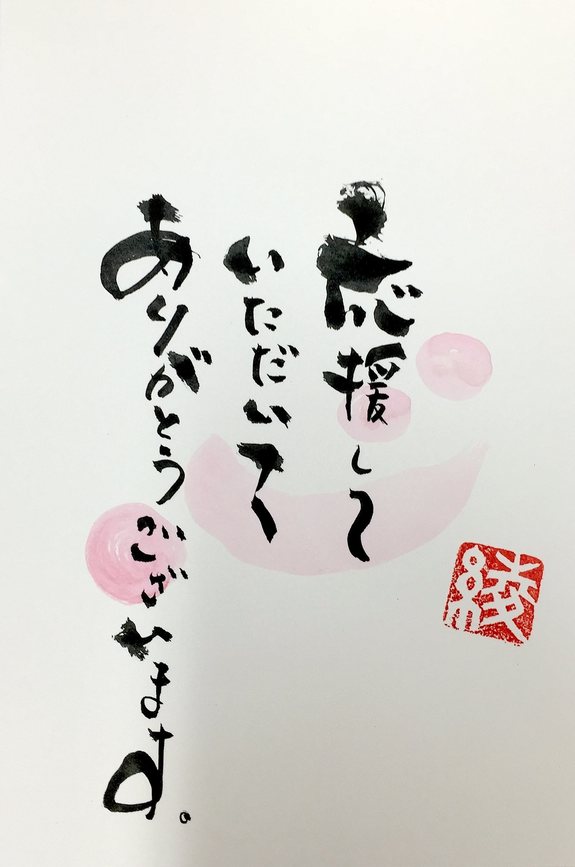 応援して
いただいて
ありがとうございます。
綾